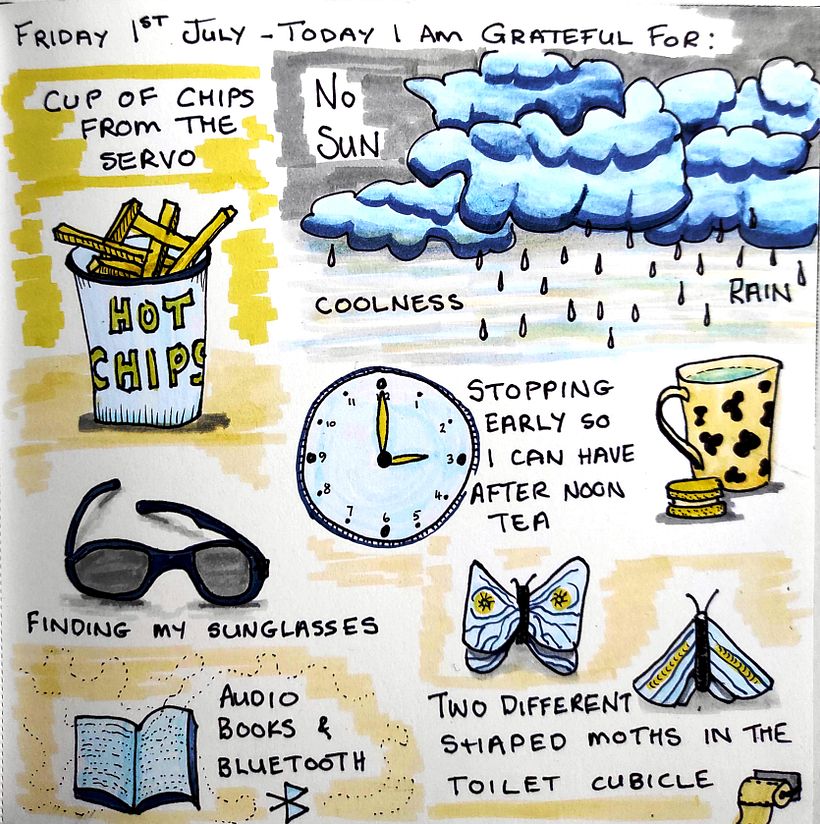 FRIDAY 1ST JULY - TODAY I AM GRATEFUL FOR:
CUP OF CHIPS
FROM THE
SERVO
HOT
CHIPS
NO
SUN
COOLNESS
RAIN
12
1
2
3
4
5
6
7
8
9
10
11
STOPPING
EARLY SO
I CAN HAVE
AFTER NOON
TEA
FINDING MY SUNGLASSES
AUDIO
BOOKS &
BLUETOOTH
TWO DIFFERENT
SHAPED MOTHS IN THE
TOILET CUBICLE